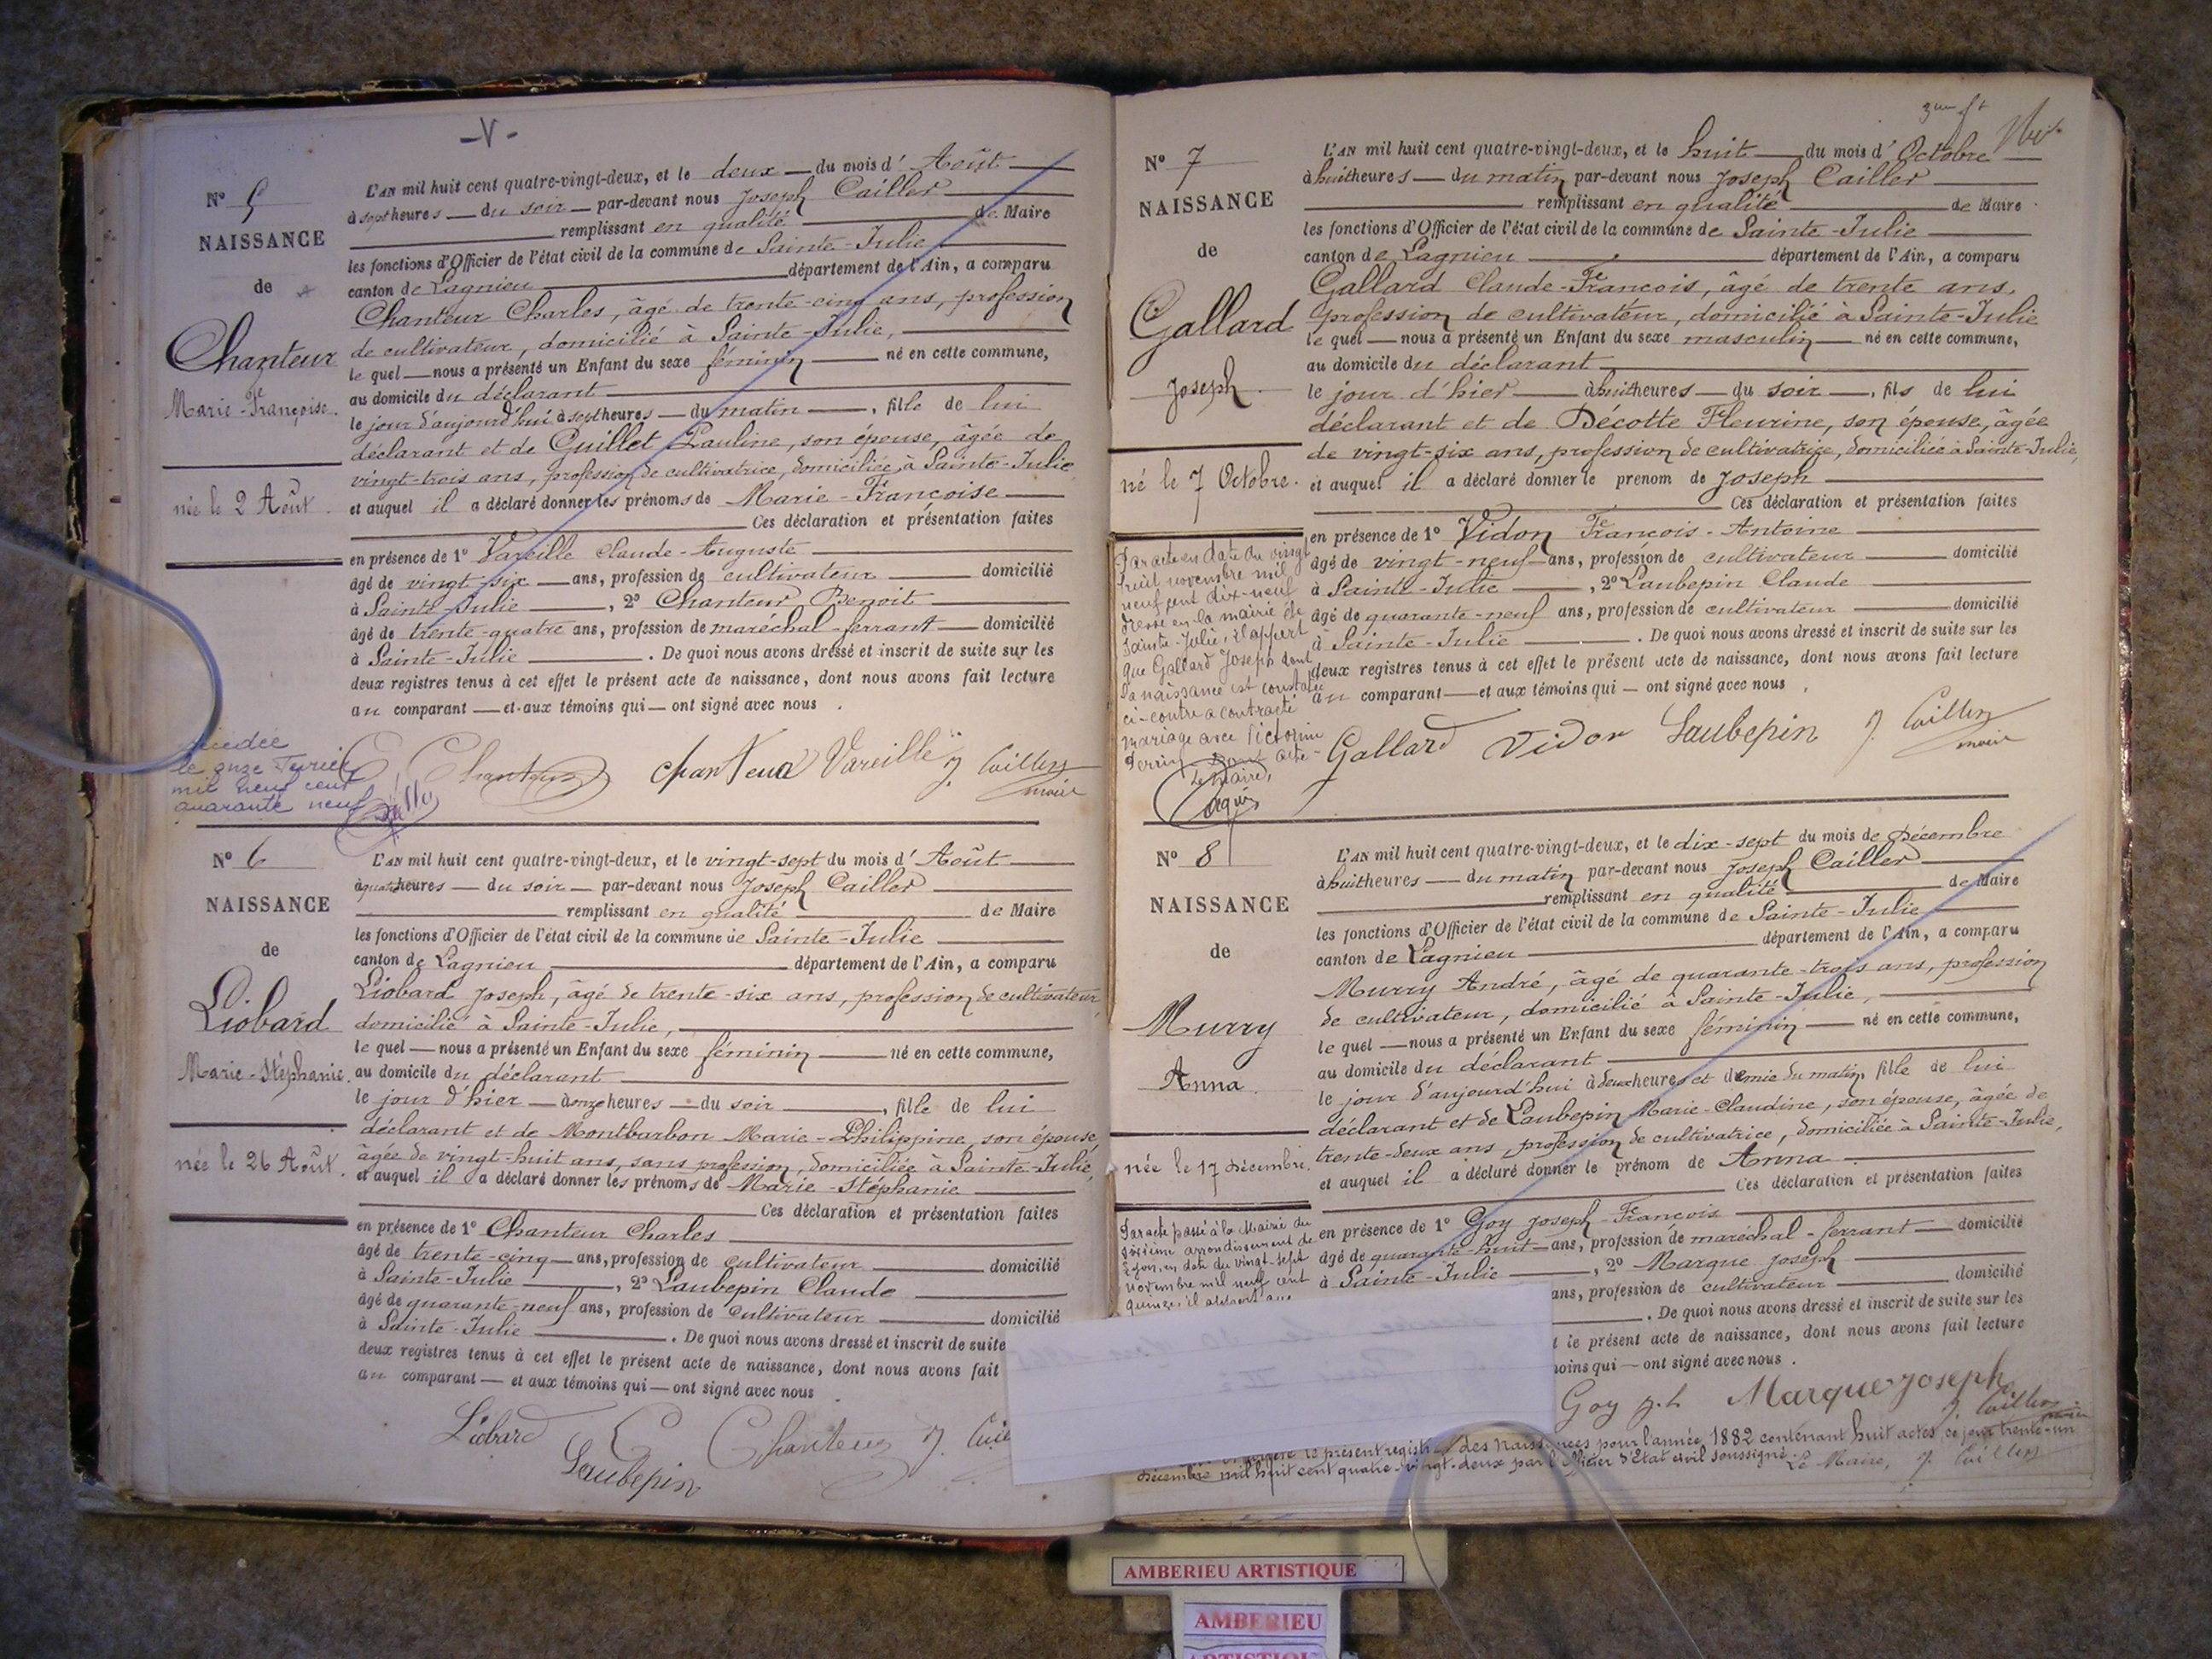 -V-
N° 5
NAISSANCE
de
Chanteur
Marie-Françoise.
née le 2 Août.
L'AN mil huit cent quatre-vingt-deux, et le deux du mois d'Août
à sept heures du soir par-devant nous Joseph Cailler
remplissant en qualité de Maire
les fonctions d'Officier de l'état civil de la commune de Sainte-Julie
canton de Lagnieu département de l'Ain, a comparu
Chanteur Charles, âgé de trente-cinq ans, profession
de cultivateur, domicilié à Sainte-Julie,
le quel nous a présenté un Enfant du sexe féminin né en cette commune,
au domicile du déclarant
le jour d'aujourd'hui à sept heures du matin, fille de lui
déclarant et de Guillet Pauline, son épouse, âgée de
vingt-trois ans, profession de cultivatrice, domiciliée à Sainte-Julie
et auquel il a déclaré donner les prénoms de Marie-Françoise
Ces déclaration et présentation faites
en présence de 1° Vareille Claude-Auguste
âgé de vingt-six ans, profession de cultivateur domicilié
à Sainte-Julie, 2° Chanteur Benoit
âgé de trente-quatre ans, profession de maréchal-ferrant domicilié
à Sainte-Julie. De quoi nous avons dressé et inscrit de suite sur les
deux registres tenus à cet effet le présent acte de naissance, dont nous avons fait lecture
au comparant et aux témoins qui ont signé avec nous.
le onze
mil neuf cent
quarante neuf
Chanteur chanteur Vareille J. Cailler
maire
N° 6
NAISSANCE
de
Liobard
Marie-Stéphanie.
née le 26 Août.
L'AN mil huit cent quatre-vingt-deux, et le vingt-sept du mois d'Août
à quatre heures du soir par-devant nous Joseph Cailler
remplissant en qualité de Maire
les fonctions d'Officier de l'état civil de la commune de Sainte-Julie
canton de Lagnieu département de l'Ain, a comparu
Liobard Joseph, âgé de trente-six ans, profession de cultivateur
domicilié à Sainte-Julie,
le quel nous a présenté un Enfant du sexe féminin né en cette commune,
au domicile du déclarant
le jour d'hier à onze heures du soir, fille de lui
déclarant et de Montbarbon Marie-Philippine, son épouse,
âgée de vingt-huit ans, sans profession, domiciliée à Sainte-Julie,
et auquel il a déclaré donner les prénoms de Marie-Stéphanie
Ces déclaration et présentation faites
en présence de 1° Chanteur Charles
âgé de trente-cinq ans, profession de cultivateur domicilié
à Sainte-Julie, 2° Laubepin Claude
âgé de quarante-neuf ans, profession de cultivateur domicilié
à Sainte-Julie. De quoi nous avons dressé et inscrit de suite
deux registres tenus à cet effet le présent acte de naissance, dont nous avons fait
au comparant et aux témoins qui ont signé avec nous.
Liobard Chanteur J.
Laubepin
N° 7
NAISSANCE
de
Gallard
Joseph.
né le 7 Octobre.
L'AN mil huit cent quatre-vingt-deux, et le huit du mois d'Octobre
à huit heures du matin par-devant nous Joseph Cailler
remplissant en qualité de Maire
les fonctions d'Officier de l'état civil de la commune de Sainte-Julie
canton de Lagnieu département de l'Ain, a comparu
Gallard Claude-François, âgé de trente ans,
profession de cultivateur, domicilié à Sainte-Julie
le quel nous a présenté un Enfant du sexe masculin né en cette commune,
au domicile du déclarant
le jour d'hier à huit heures du soir, fils de lui
déclarant et de Décotte Fleurine, son épouse, âgée
de vingt-six ans, profession de cultivatrice, domiciliée à Sainte-Julie,
et auquel il a déclaré donner le prenom de Joseph
Ces déclaration et présentation faites
en présence de 1° Vidon François-Antoine
âgé de vingt-neuf ans, profession de cultivateur domicilié
à Sainte-Julie, 2° Laubepin Claude
âgé de quarante-neuf ans, profession de cultivateur domicilié
à Sainte-Julie. De quoi nous avons dressé et inscrit de suite sur les
deux registres tenus à cet effet le présent acte de naissance, dont nous avons fait lecture
au comparant et aux témoins qui ont signé avec nous.
Par acte en date du vingt
huit novembre mil
neuf cent dix-neuf
dressé en la mairie de
Sainte-Julie, il appert
que Gallard Joseph dont
la naissance est constatée
ci-contre a contracté
mariage avec Victorine
Perrin
Le Maire,
Gallard Vidon Laubepin J. Cailler
maire
N° 8
NAISSANCE
de
Murry
Anna.
née le 17 décembre.
L'AN mil huit cent quatre-vingt-deux, et le dix-sept du mois de Décembre
à huit heures du matin par-devant nous Joseph Cailler
remplissant en qualité de Maire
les fonctions d'Officier de l'état civil de la commune de Sainte-Julie
canton de Lagnieu département de l'Ain, a comparu
Murry André, âgé de quarante-trois ans, profession
de cultivateur, domicilié à Sainte-Julie,
le quel nous a présenté un Enfant du sexe féminin né en cette commune,
au domicile du déclarant
le jour d'aujourd'hui à deux heures et demie du matin, fille de lui
déclarant et de Laubepin Marie-Claudine, son épouse, âgée de
trente-deux ans, profession de cultivatrice, domiciliée à Sainte-Julie,
et auquel il a déclaré donner le prénom de Anna
Ces déclaration et présentation faites
en présence de 1° Goy Joseph-François
âgé de quarante-huit ans, profession de maréchal-ferrant domicilié
à Sainte-Julie, 2° Marque Joseph
ans, profession de cultivateur domicilié
. De quoi nous avons dressé et inscrit de suite sur les
le présent acte de naissance, dont nous avons fait lecture
qui ont signé avec nous.
Par acte passé à la Mairie du
arrondissement de
Lyon, en date du vingt-sept
novembre mil neuf cent
quinze, il appert que
Goy Marque joseph
J. Cailler
maire
le présent registre des naissances pour l'année 1882 contenant huit actes ce jour trente-un
décembre mil huit cent quatre-vingt-deux par l'officier d'état civil soussigné.
Le Maire, J. Cailler
AMBERIEU ARTISTIQUE
AMBERIEU
ARTISTIQUE